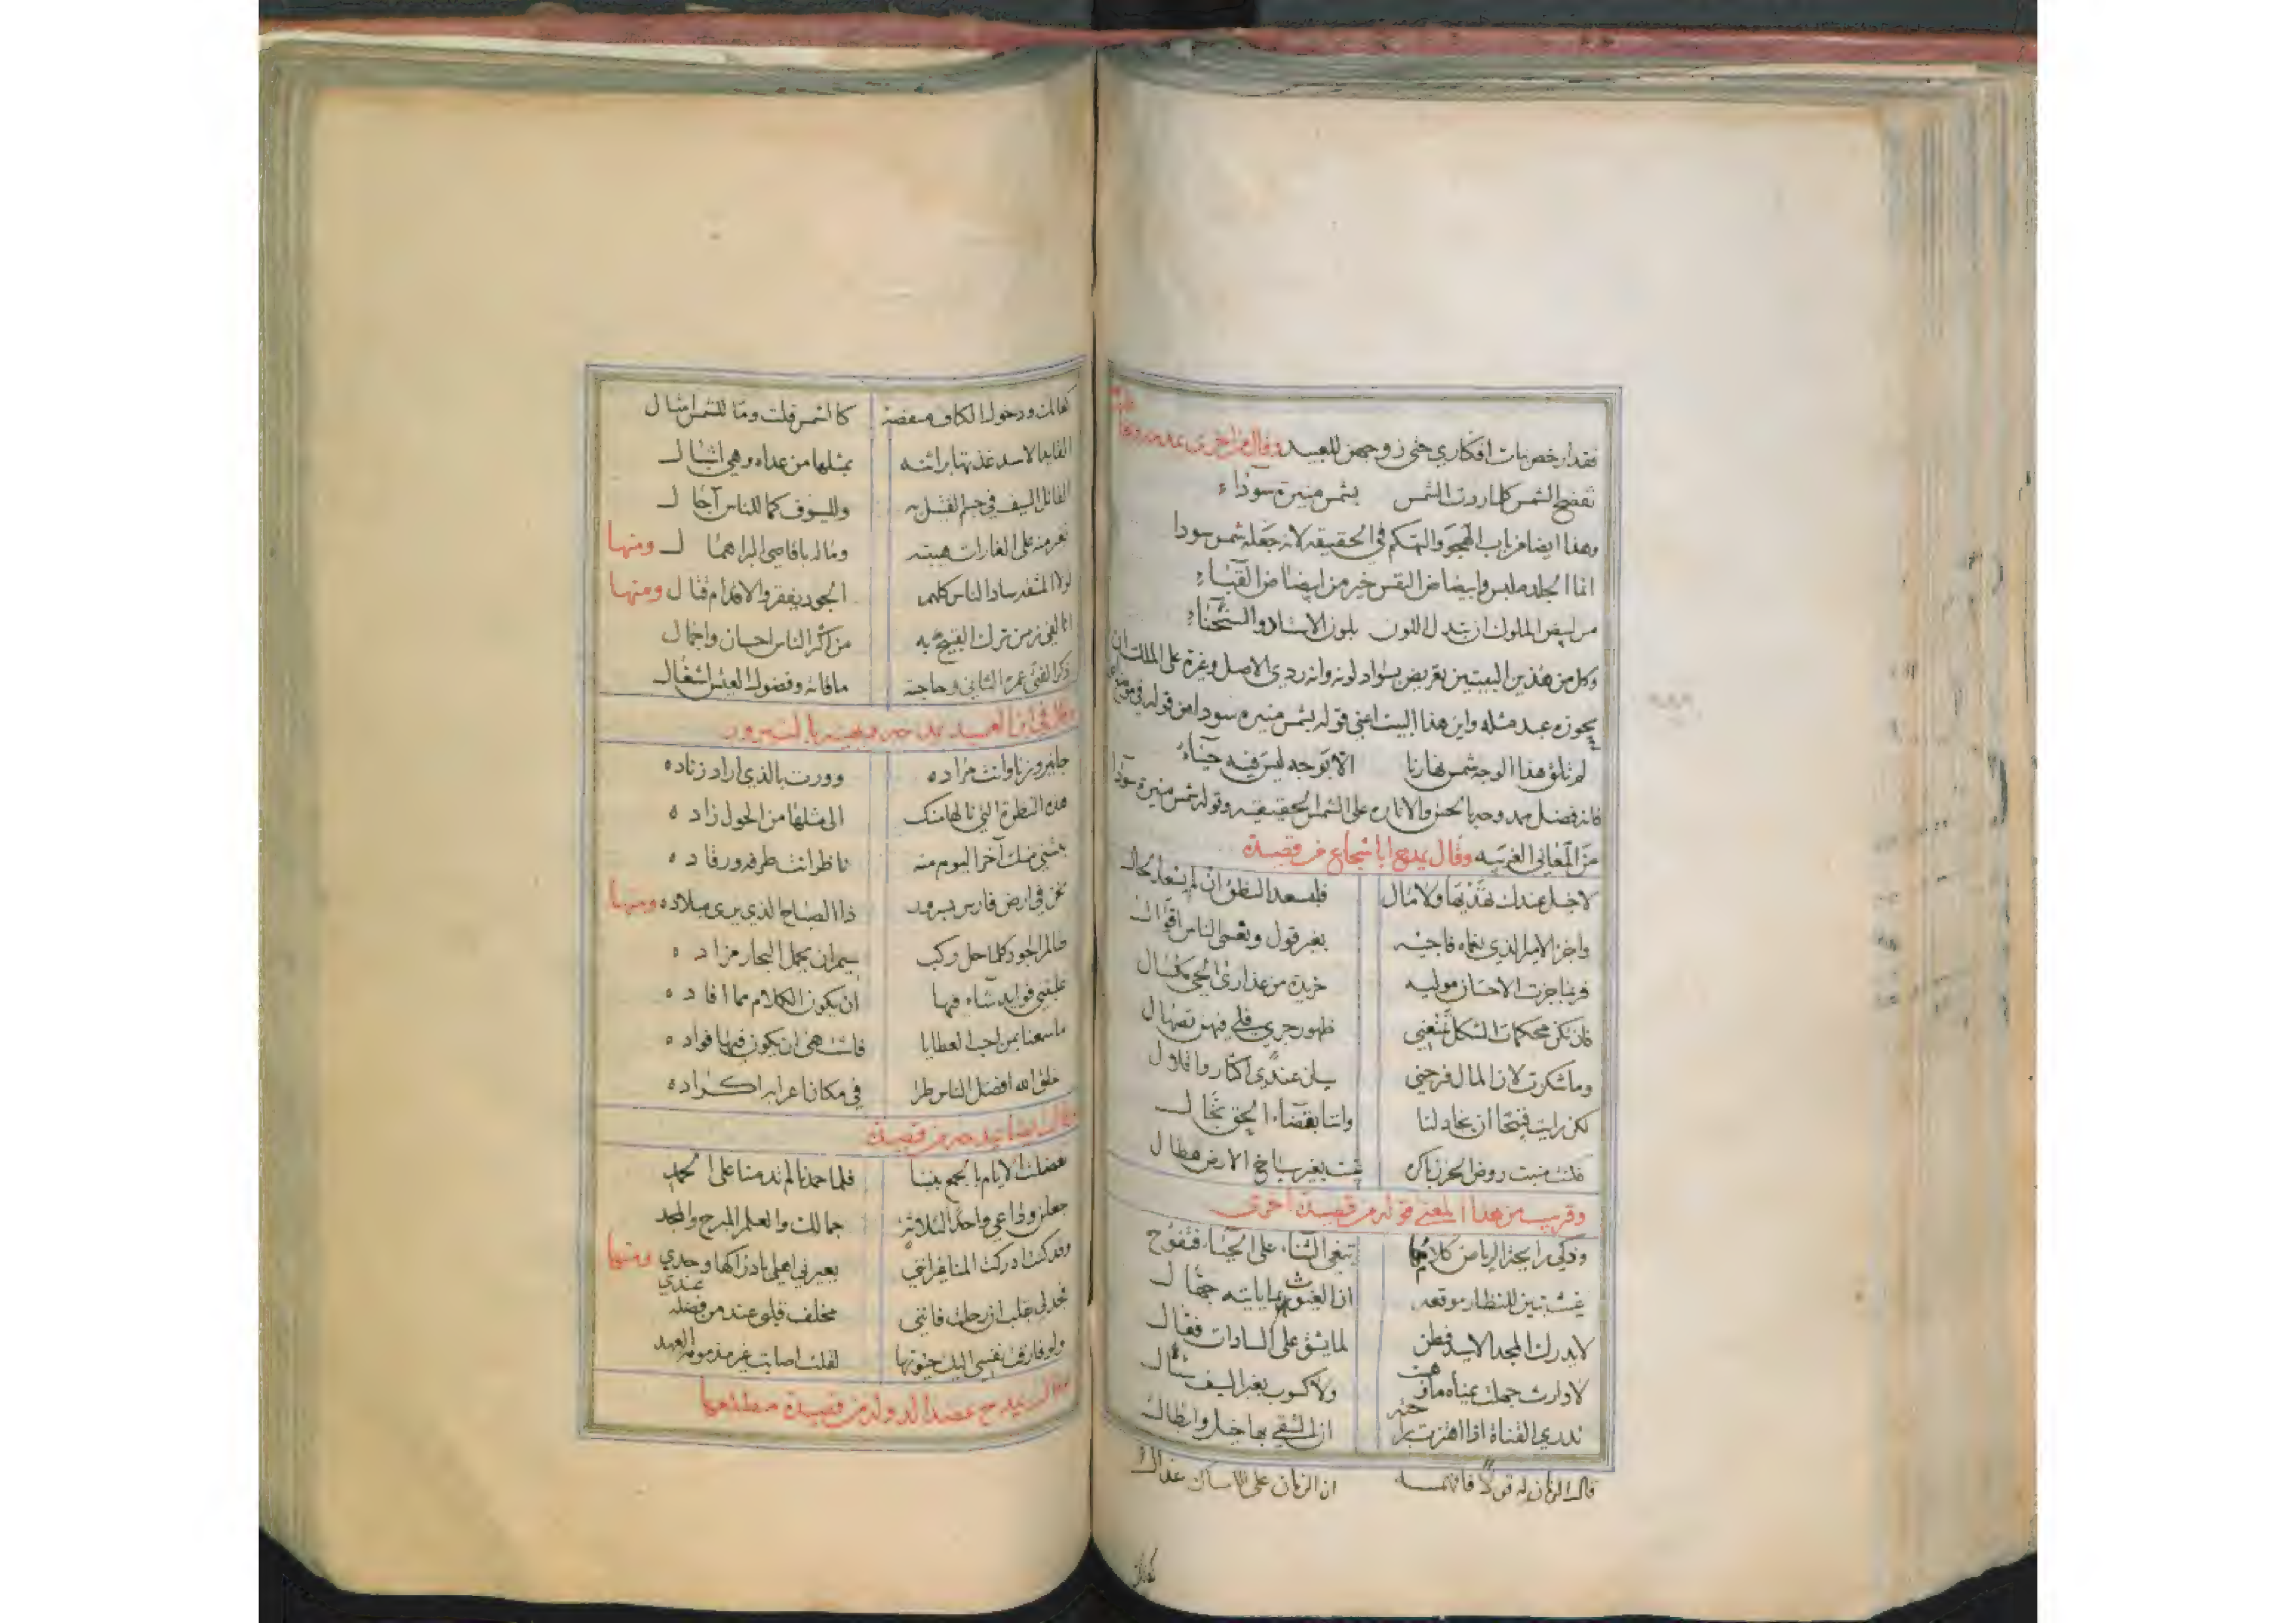 فقد ارخص بنات افكاري حتى زوجهن للعبيد وقال من اخرى يمدحه
تفضح الشمس كلما ذرت الشمس بشمس منيرة سوداء
وهذا ايضا من باب الهجو والتهكم في الحقيقه لانه جعله شمس سودا
انما الجلد ملبس وابيضاض النفس خير من ابيضاض القباء
من لبيض الملوك ان تبدل اللون بلون الاستاذ والسحناء
وكل من هذين البيتين تعريض بسواد لونه وانه ردي الاصل وغرة على الملك ان
يحوزه عبد مثله واين هذا البيت اعني قوله بشمس منيره سودا من قوله في موضع
لم تلق هذا الوجه شمس نهارنا الا بوجه ليس فيه حياء
فانه فضل ممدوحه بالحسن والاناره على الشمس الحقيقيه وقوله شمس منيرة سودا
من المعاني الغريبه وقال يمدح ابا شجاع من قصيدة
لا خيل عندك تهديها ولا مال فليسعد النطق ان لم يسعد الحال
واجز الامير الذي نعماه فاجئه بغير قول ونعمى الناس اقوال
فربما جزت الاحسان موليه خريدة من عذارى الحي مكسال
فان تكن محكمات الشكل تمنعني ظهور جري فلي فيهن تصهال
وما شكرت لان المال فرحني سيان عندي اكثار واقلال
لكن رايت قبيحا ان يجاد لنا واننا بقضاء الحق بخال
فكنت منبت روض الحزن باكره غيث بغير سباخ الارض هطال
وقريب من هذا المعنى قوله من قصيدة اخرى
وذكي رايحة الرياض كلامها تبغي الثناء على الحياء فتفوح
غيث تبين للنظار موقعه ان الغيوث بما ياتيه جهال
لا يدرك المجد الا سيد فطن لما يشق على السادات فعال
لا وارث جهلت يمناه ما وهبت ولا كسوب بغير السيف سئال
قال الزمان له قولا فافهمه ان الزمان على الامساك عذال
تدري القناة اذا اهتزت براحته ان الشقي بها خيل وابطال
كفاتك
كفاتك ودخول الكاف منقصة كالشمس قلت وما للشمس امثال
القايد الاسد غذتها براثنه بمثلها من عداه وهي اشبال
القاتل السيف في جسم القتيل به وللسيوف كما للناس آجال
تغير منه على الغارات هيبته وماله باقاصي البر اهمال ومنها
لولا المشقة ساد الناس كلهم الجود يفقر والاقدام قتال ومنها
انا لفي زمن ترك القبيح به من اكثر الناس احسان واجمال
ذكر الفتى عمره الثاني وحاجته ما فاته وفضول العيش اشغال
وقال في ابن العميد يمدحه ويهنيه بالنيروز
جا نيروزنا وانت مراده وورت بالذي اراد زناده
هذه النظرة التي نالها منك الى مثلها من الحول زاده
ينثني عنك آخر اليوم منه ناظر انت طرفه ورقاده
نحن في ارض فارس في سرور ذا الصباح الذي يرى ميلاده ومنها
ظالم الجود كلما حل ركب سيم ان يحمل البحار مزاده
غمرتني فوايد شاء فيها ان يكون الكلام مما افاده
ما سمعنا بمن احب العطايا فاشتهى ان يكون فيها فؤاده
خلق الله افصح الناس طرا في مكان اعرابه اكراده
وقال ايضا يمدحه من قصيدة
تفضلت الايام بالجمع بيننا فلما حمدنا لم تدمنا على الحمد
جعلن وداعي واحدا لثلاثة جمالك والعلم المبرح والمجد
وقد كنت ادركت المنا غير انني يعيرني اهلي بادراكها وحدي ومنها
فجد لي بقلب ان رحلت فانني مخلف قلبي عند من فضله عندي
ولو فارقت نفسي اليك حيوتها لقلت اصابت غير مذمومة العهد
وقال يمدح عضد الدوله من قصيدة مطلعها